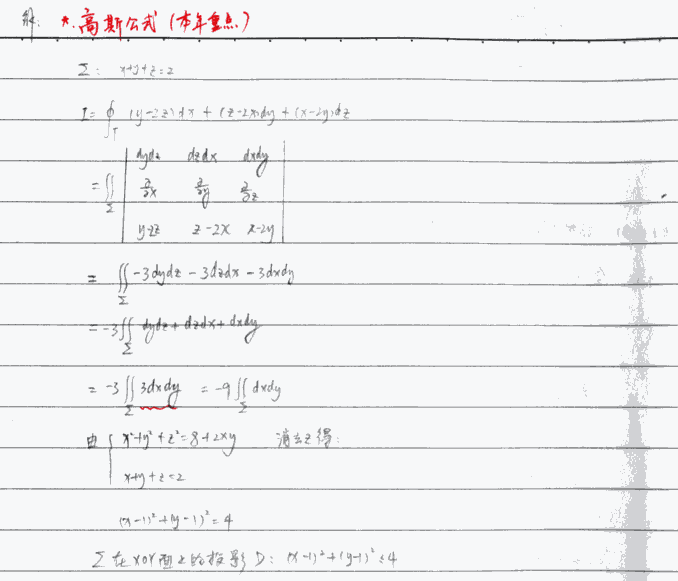 解: *. 高斯公式 (本年重点)
Σ: x+y+z=2
I = ∮_Γ (y-2z)dx + (z-2x)dy + (x-2y)dz
= ∬_Σ | dydz dzdx dxdy |
| ∂/∂x ∂/∂y ∂/∂z |
| y-2z z-2x x-2y |
= ∬_Σ -3dydz - 3dzdx - 3dxdy
= -3∬_Σ dydz + dzdx + dxdy
= -3∬_Σ 3dxdy = -9∬_Σ dxdy
由 { x²+y²+z²=8+2xy 消去z得:
x+y+z=2
(x-1)²+(y-1)²=4
Σ在XOY面上的投影D: (x-1)²+(y-1)²≤4